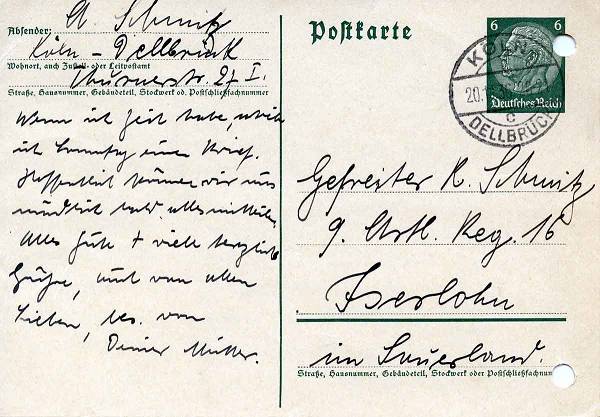 Absender: A. Schmitz
Köln - Dellbrück
Wohnort, auch Zustell- oder Leitpostamt
Thurnerstr. 27 I.
Straße, Hausnummer, Gebäudeteil, Stockwerk od. Postschließfachnummer
Wenn ich Zeit habe, schreibe
ich Sonntag einen Brief.
Hoffentlich können wir uns
mündlich bald alles mitteilen.
Alles Gute + viele herzliche
Grüße, auch von allen
Lieben, bes. von
Deiner Mutter.
Postkarte
6 6
Deutsches Reich
KÖLN
20.
c
DELLBRÜCK
Gefreiter K. Schmitz
9. Artl. Reg. 16
Iserlohn
im Sauerland.
Straße, Hausnummer, Gebäudeteil, Stockwerk oder Postschließfachnum